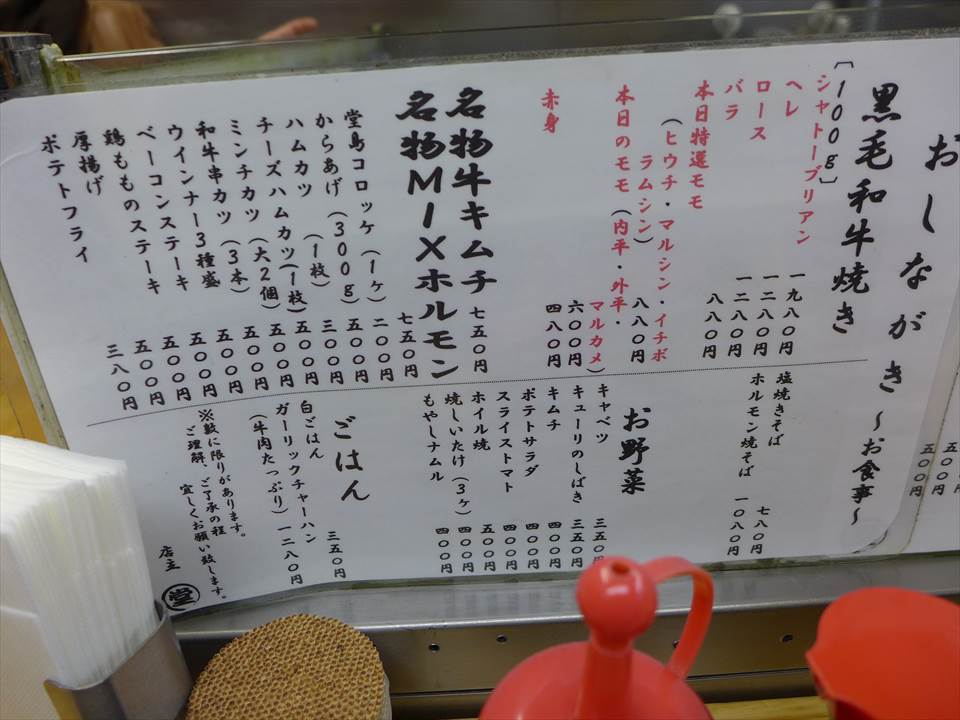 おしながき ～お食事～
黒毛和牛焼き
〔100g〕
シャトーブリアン 一九八〇円
ヘレ 一二八〇円
ロース 一二八〇円
バラ 八八〇円
本日特選モモ
（ヒウチ・マルシン・イチボ
ラムシン） 八八〇円
本日のモモ（内平・外平・
マルカメ） 六〇〇円
赤身 四八〇円
名物牛キムチ 七五〇円
名物MIXホルモン 七五〇円
堂島コロッケ（1ヶ） 二〇〇円
からあげ（300g） 五〇〇円
ハムカツ（1枚） 三〇〇円
チーズハムカツ(1枚) 五〇〇円
ミンチカツ（大2個） 五〇〇円
和牛串カツ（3本） 五〇〇円
ウインナー3種盛 五〇〇円
ベーコンステーキ 五〇〇円
鶏もものステーキ 五〇〇円
厚揚げ 五〇〇円
ポテトフライ 三八〇円
塩焼きそば 七八〇円
ホルモン焼そば 一〇八〇円
お野菜
キャベツ 三五〇円
キューリのしばき 三五〇円
キムチ 四〇〇円
ポテトサラダ 四〇〇円
スライストマト 四〇〇円
ホイル焼 五〇〇円
焼しいたけ（3ヶ） 四〇〇円
もやしナムル 四〇〇円
ごはん
白ごはん 三五〇円
ガーリックチャーハン
（牛肉たっぷり） 一二八〇円
※数に限りがあります。
ご理解、ご了承の程
宜しくお願い致します。
店主 堂
五〇〇円
五〇〇円